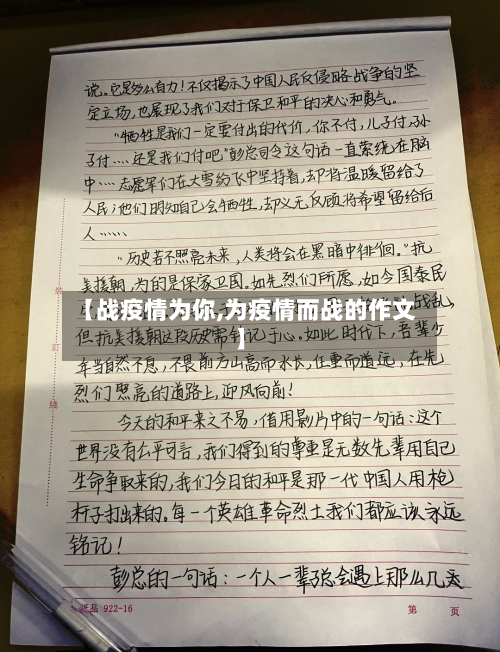 说。它是多么有力！不仅揭示了中国人民反侵略战争的坚
定立场，也展现了我们对于保卫和平的决心和勇气。
“牺牲是我们一定要付出的代价，你不付，儿子付，孙
子付……还是我们付吧”彭总司令这句话一直萦绕在脑
中……志愿军们在大雪纷飞中坚持着，却将温暖留给了
人民；他们明知自己会牺牲，却义无反顾将希望留给后
人……
“历史若不照亮未来，人类将会在黑暗中徘徊。”抗
美援朝，为的是保家卫国。如先烈们所愿，如今国泰民
战乱，
【战疫情为你,为疫情而战的作文
】
但抗美援朝这段历史需铭记于心。如此时代下，吾辈少
年当自然不息，不畏前方山高而水长，任重而道远，在先
烈们照亮的道路上，迎风向前！
今天的和平来之不易，借用影片中的一句话：这个
世界没有公平可言，我们得到的尊重是无数先辈用自己
生命争取来的，我们今日的和平是那一代中国人用枪
杆子打出来的。每一个英雄革命烈士我们都应该永远
铭记！
彭总的一句话：一个人一辈子总会遇上那么几天
装
订
线
922-16
第 页